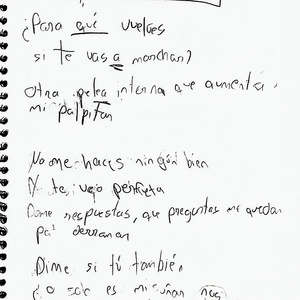 ¿Para qué vuelves
si te vas a marchar?
Otra pelea interna que aumenta
mi palpitar
No me haces ningún bien
Y te veo perfecta
Dame respuestas, que preguntas me quedan
pa' derramar
Dime si tú también
¿O solo es mi